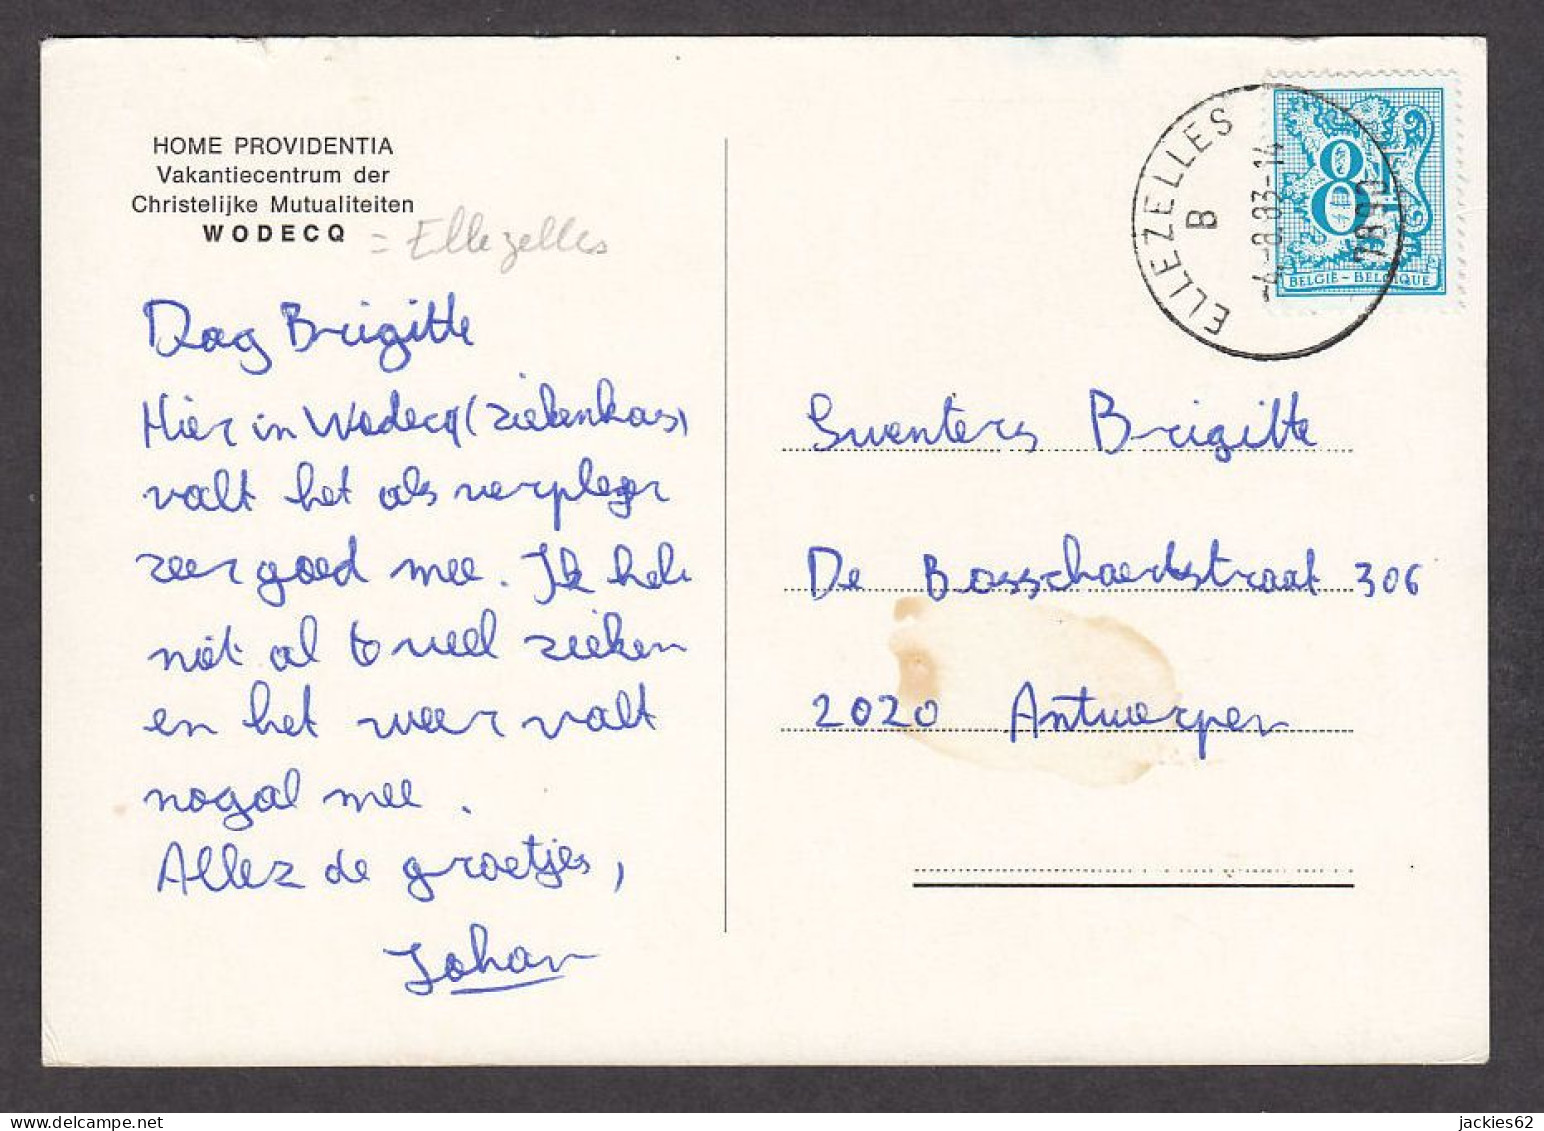 HOME PROVIDENTIA
Vakantiecentrum der
Christelijke Mutualiteiten
WODECQ = Ellezelles
Dag Brigitte
Hier in Wodecq (ziekenkas)
valt het als verpleger
zeer goed mee. Ik heb
niet al te veel zieken
en het weer valt
nogal mee.
Allez de groetjes,
Johan
ELLEZELLES
B
-4-8.83-14
7890
8F
BELGIË - BELGIQUE
Swenters Brigitte
De Bosschaertstraat 306
2020 Antwerpen
jackies62